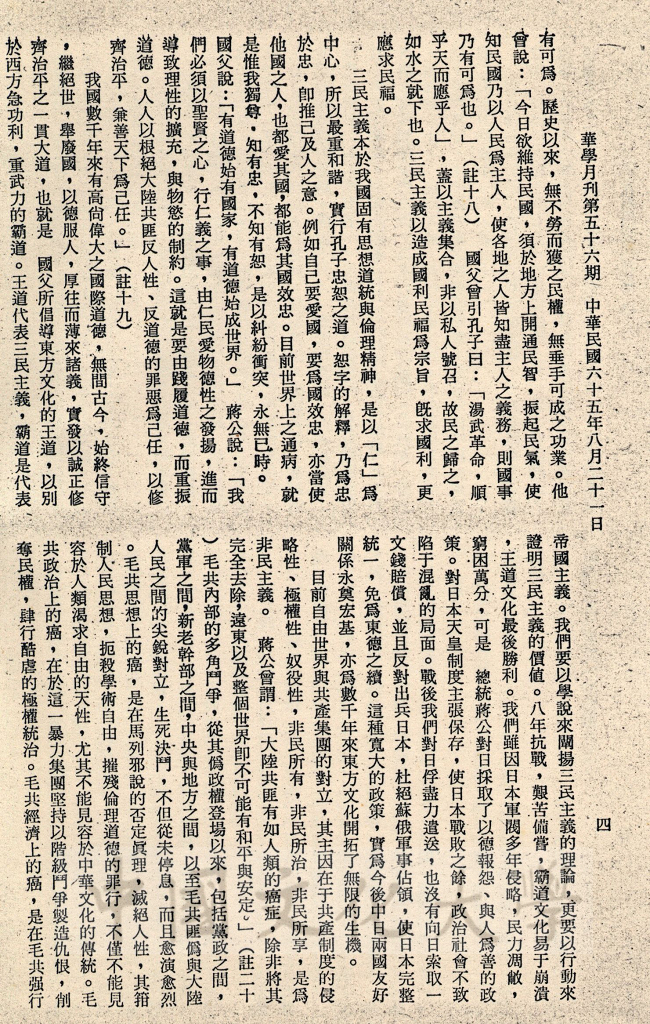 華學月刊第五十六期　中華民國六十五年八月二十一日
四
有可為。歷史以來，無不勞而獲之民權，無垂手可成之功業。他
曾說：「今日欲維持民國，須於地方上開通民智，振起民氣，使
知民國乃以人民為主人，使各地之人皆知盡主人之義務，則國事
乃有可為也。」（註十八）　國父曾引孔子曰：「湯武革命，順
乎天而應乎人」，蓋以主義集合，非以私人號召，故民之歸之，
如水之就下也。三民主義以造成國利民福為宗旨，旣求國利，更
應求民福。
三民主義本於我國固有思想道統與倫理精神，是以「仁」為
中心，所以最重和諧，實行孔子忠恕之道。恕字的解釋，乃為忠
於忠，卽推己及人之意。例如自己要愛國，要為國效忠，亦當使
他國之人，也都愛其國，都能為其國效忠。目前世界上之通病，就
是惟我獨尊，知有忠，不知有恕，是以糾紛衝突，永無已時。
國父說：「有道德始有國家，有道德始成世界。」　蔣公說：「我
們必須以聖賢之心，行仁義之事，由仁民愛物德性之發揚，進而
導致理性的擴充，與物慾的制約。這就是要由踐履道德，而重振
道德。人人以根絕大陸共匪反人性、反道德的罪惡為己任，以修
齊治平，兼善天下為己任。」（註十九）
我國數千年來有高尚偉大之國際道德，無間古今，始終信守
，繼絕世，舉廢國，以德服人，厚往而薄來諸義，實發以誠正修
齊治平之一貫大道，也就是　國父所倡導東方文化的王道，以別
於西方急功利，重武力的霸道。王道代表三民主義，霸道是代表
帝國主義。我們要以學說來闡揚三民主義的理論，更要以行動來
證明三民主義的價值。八年抗戰，艱苦備嘗，霸道文化易于崩潰
，王道文化最後勝利。我們雖因日本軍閥多年侵略，民力凋敝，
窮困萬分，可是　總統蔣公對日採取了以德報怨、與人為善的政
策。對日本天皇制度主張保存，使日本戰敗之餘，政治社會不致
陷于混亂的局面。戰後我們對日俘盡力遣送，也沒有向日索取一
文錢賠償，並且反對出兵日本，杜絕蘇俄軍事佔領，使日本完整
統一，免為東德之續。這種寬大的政策，實為今後中日兩國友好
關係永奠宏基，亦為數千年來東方文化開拓了無限的生機。
目前自由世界與共產集團的對立，其主因在于共產制度的侵
略性、極權性、奴役性，非民所有，非民所治，非民所享，是為
非民主義。　蔣公曾謂：「大陸共匪有如人類的癌症，除非將其
完全去除，遠東以及整個世界卽不可能有和平與安定。」（註二十
）毛共內部的多角鬥爭，從其偽政權登場以來，包括黨政之間，
黨軍之間，新老幹部之間，中央與地方之間，以至毛共匪偽與大陸
人民之間的尖銳對立，生死決鬥，不但從未停息，而且愈演愈烈
。毛共思想上的癌，是在馬列邪說的否定眞理，滅絕人性，其箝
制人民思想，扼殺學術自由，摧殘倫理道德的罪行，不僅不能見
容於人類渴求自由的天性，尤其不能見容於中華文化的傳統。毛
共政治上的癌，在於這一暴力集團堅持以階級鬥爭製造仇恨，削
奪民權，肆行酷虐的極權統治。毛共經濟上的癌，是在毛共強行
中國文化大學